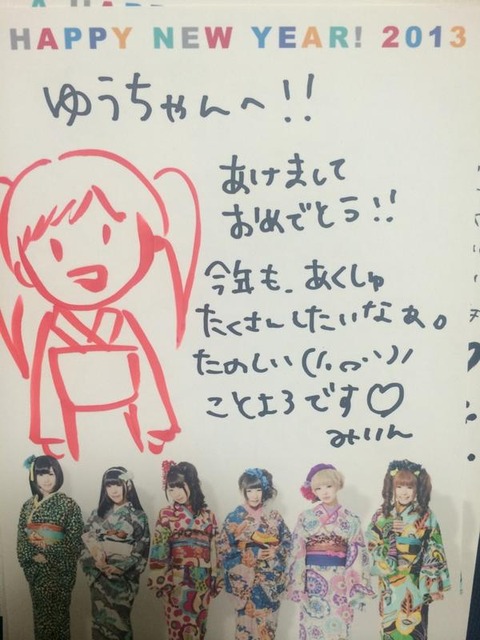 HAPPY NEW YEAR! 2013
ゆうちゃんへ!!
あけまして
おめでとう!!
今年も、あくしゅ
たくさんしたいなぁ。
たのしい
ことよろです♡
みりん